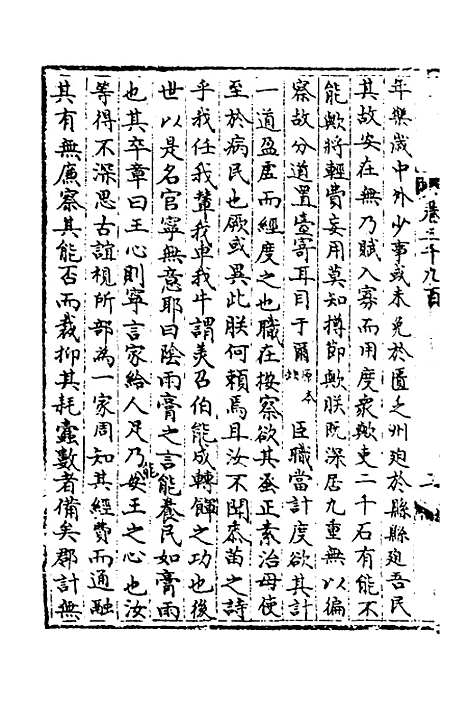 卷三千九百
二
年樂歲中外少事或未免於匱乏州廹於縣縣廹吾民
其故安在無乃賦入寡而用度衆歟吏二千石有能不
能歟將輕費妄用莫知撙節歟朕既深居九重無以徧
察故分道置臺寄耳目于爾原本北臣職當計度欲其計
一道盈虛而經度之也職在按察欲其烝正素治毋使
至於病民也厥或異此朕何頼焉且汝不聞黍苗之詩
乎我任我輦我車我牛謂美召伯能成轉餫之功也後
世以是名官寧無意耶曰陰雨膏之言能養民如膏雨
也其卒章曰王心則寧言家給人足乃能安王之心也汝
等得不深思古誼視所部為一家周知其經費而通融
其有無廉察其能否而裁抑其耗蠹數者備矣郡計無